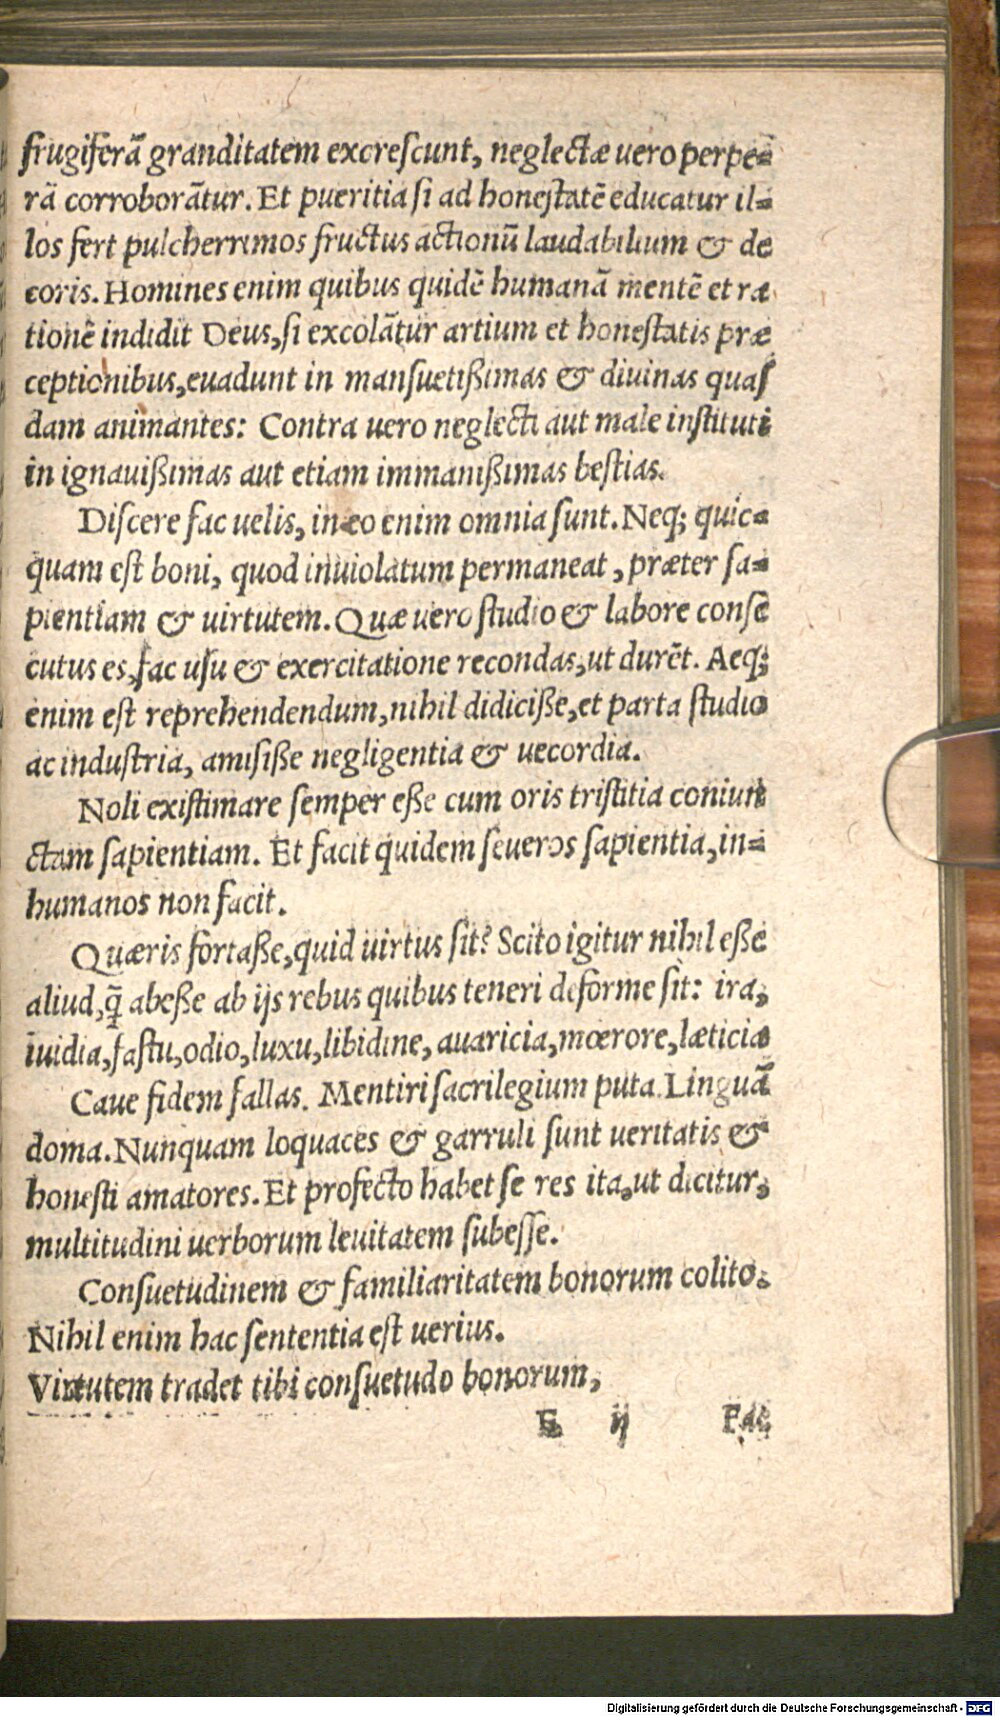 frugiferā granditatem excreſcunt, neglectæ uero perpe-
rā corroborātur. Et pueritia ſi ad honeſtatē educatur il-
los fert pulcherrimos fructus actionū laudabilium & de
coris. Homines enim quibus quidē humanā mentē et ra
tionē indidit Deus, ſi excolātur artium et honeſtatis præ
ceptionibus, euadunt in manſuetiſsimas & diuinas quaſ
dam animantes: Contra uero neglecti aut male inſtituti
in ignauiſsimas aut etiam immaniſsimas beſtias.
Diſcere fac uelis, in eo enim omnia ſunt. Neq; quic-
quam eſt boni, quod inuiolatum permaneat, præter ſa-
pientiam & uirtutem. Quæ uero ſtudio & labore conſe
cutus es, fac uſu & exercitatione recondas, ut durēt. Aeq;
enim eſt reprehendendum, nihil didiciſse, et parta ſtudio
ac induſtria, amiſiſse negligentia & uecordia.
Noli exiſtimare ſemper eſse cum oris triſtitia coniun
ctam ſapientiam. Et facit quidem ſeueros ſapientia, in-
humanos non facit.
Quæris fortaſse, quid uirtus ſit? Scito igitur nihil eſse
aliud, q̄ abeſse ab ijs rebus quibus teneri deforme ſit: ira,
īuidia, faſtu, odio, luxu, libidine, auaricia, mœrore, læticia
Caue fidem fallas. Mentiri ſacrilegium puta. Linguā
doma. Nunquam loquaces & garruli ſunt ueritatis &
honeſti amatores. Et profecto habet ſe res ita, ut dicitur,
multitudini uerborum leuitatem ſubeſſe.
Conſuetudinem & familiaritatem bonorum colito.
Nihil enim hac ſententia eſt uerius.
Virtutem tradet tibi conſuetudo bonorum,
E ij Fac
Digitalisierung gefördert durch die Deutsche Forschungsgemeinschaft - DFG